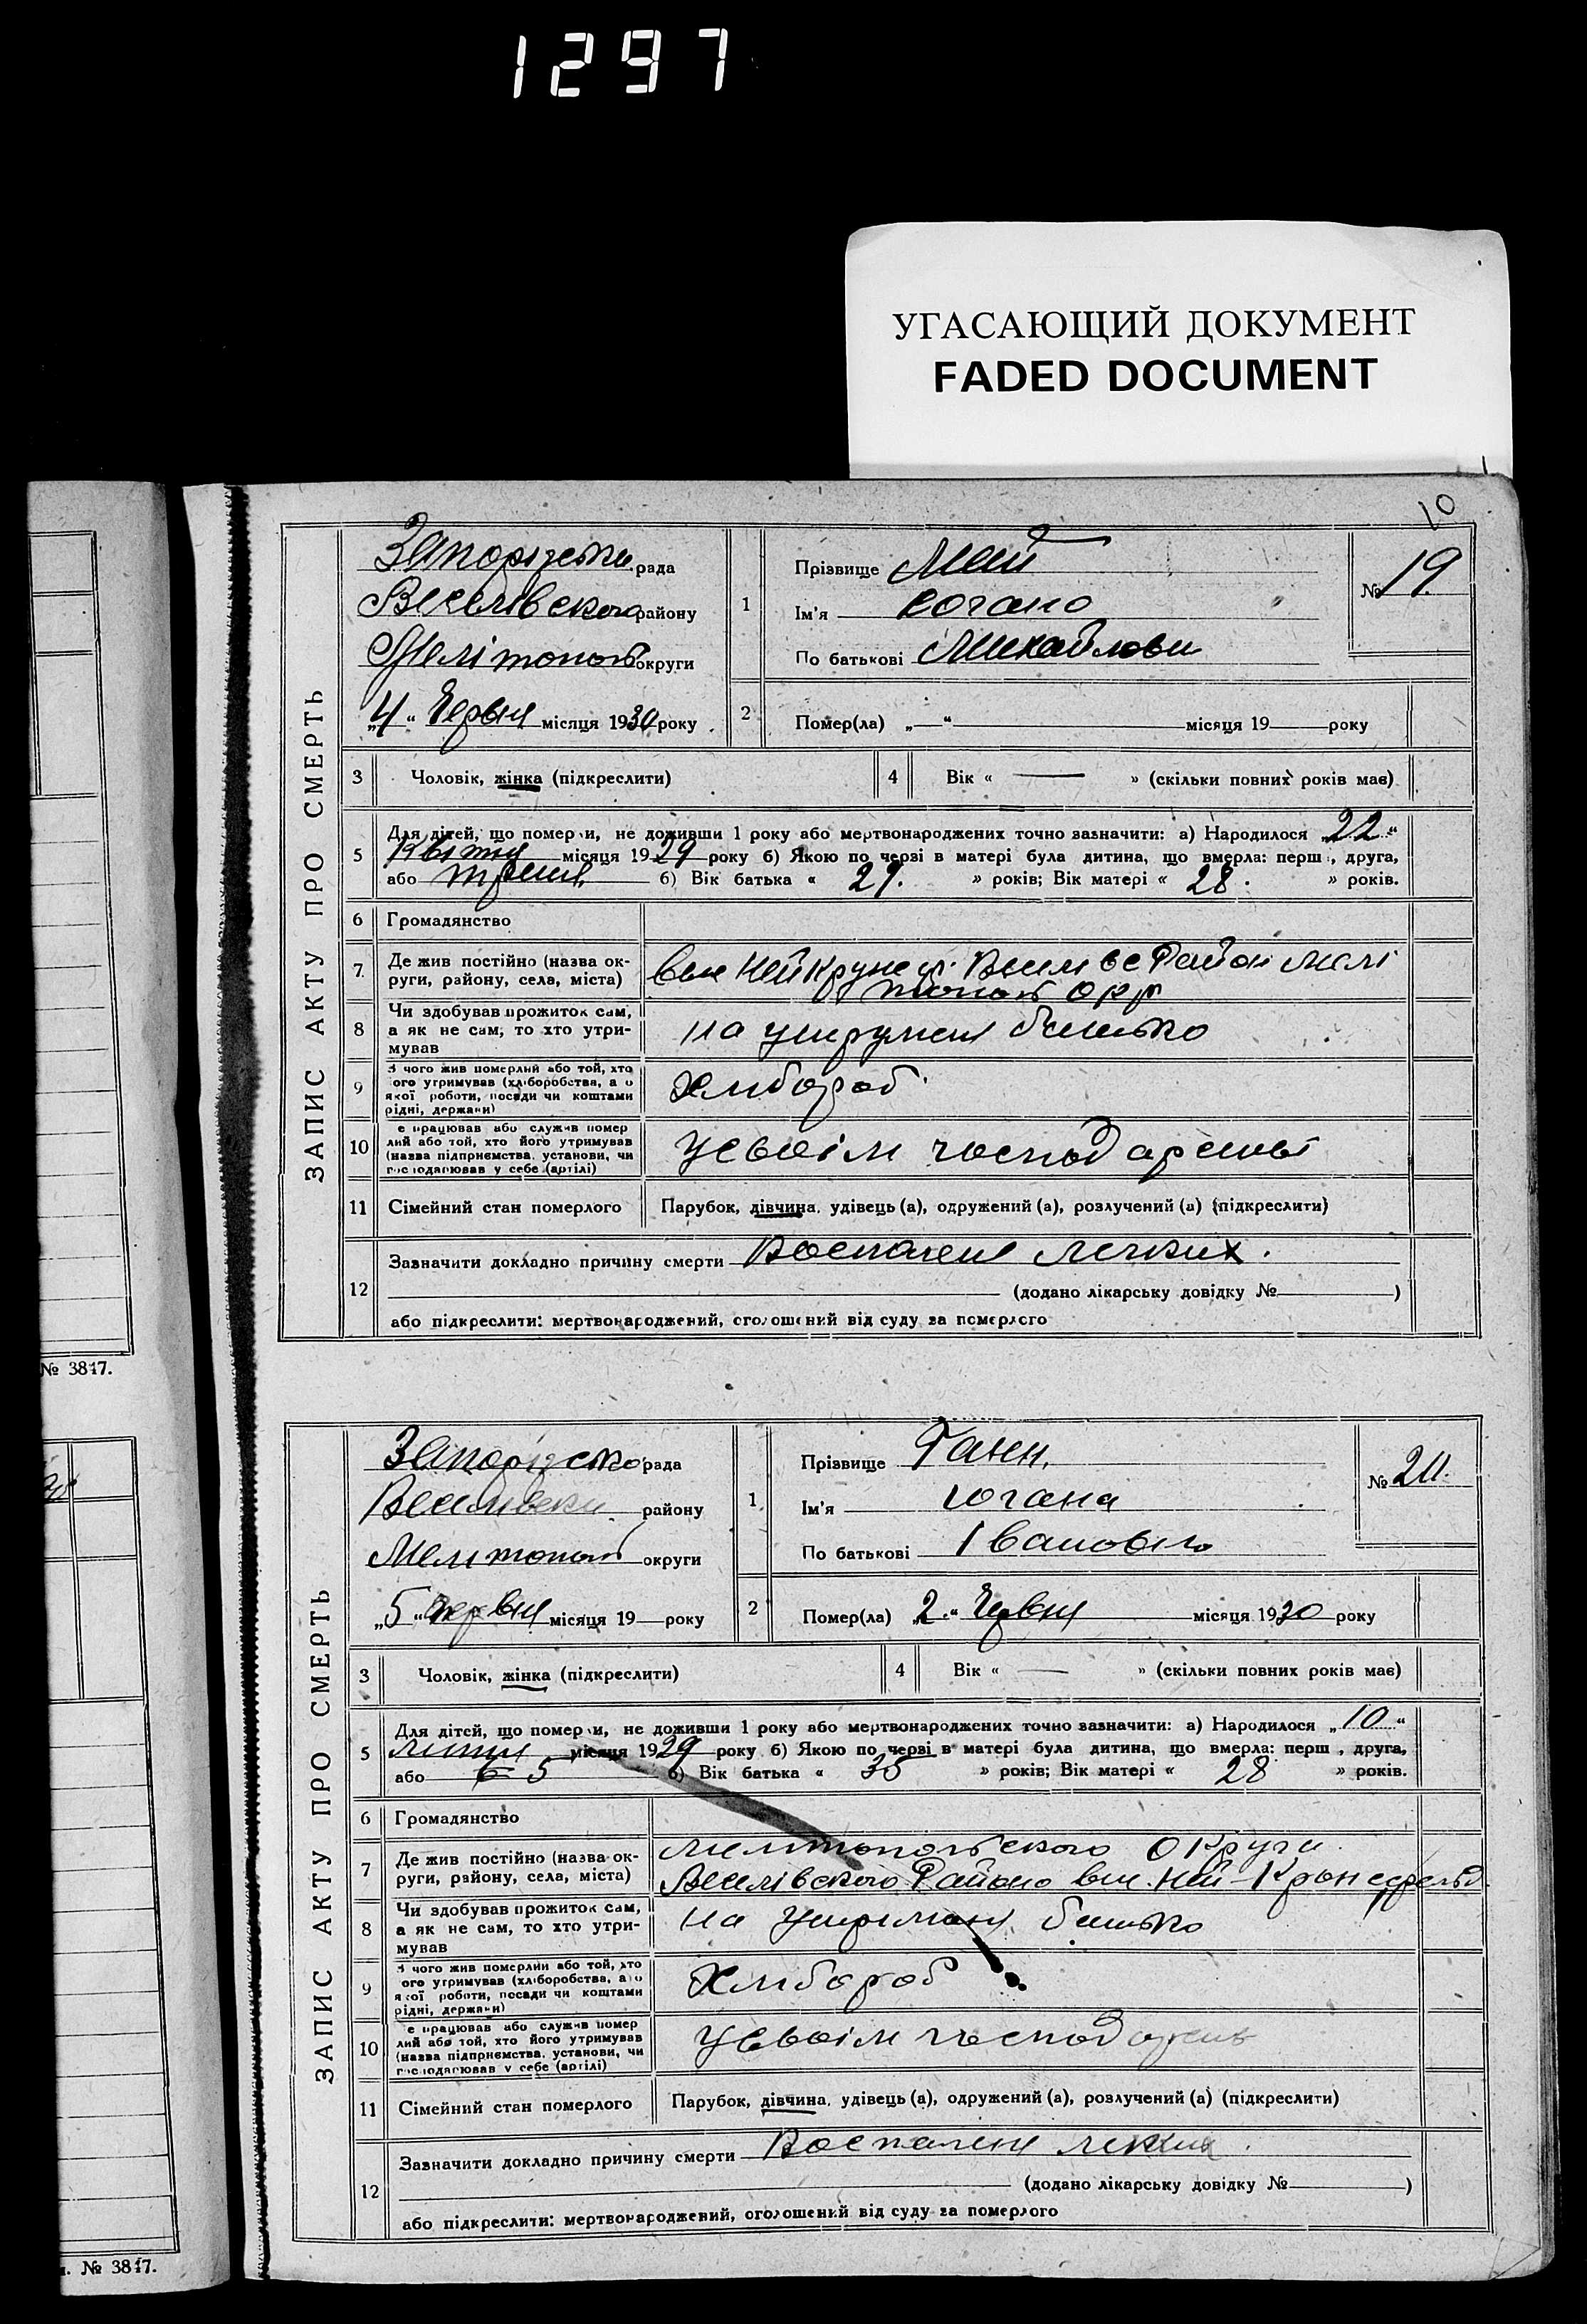 1297
УГАСАЮЩИЙ ДОКУМЕНТ
FADED DOCUMENT
10
ЗАПИС АКТУ ПРО СМЕРТЬ
Запорізька рада
Веселівского району
Мелітополь округи
„4“ Червня місяця 1930 року
1
Прізвище Мей
Ім'я Югана
По батькові Михайлови
№ 19.
2
Помер(ла) „—“ місяця 19 року
3 Чоловік, жінка (підкреслити)
4 Вік « — » (скільки повних років має)
5 Для дітей, що померли, не доживши 1 року або мертвонароджених точно зазначити: а) Народилося „22“
Квітня місяця 1929 року б) Якою по черзі в матері була дитина, що вмерла: перша, друга,
або третя б) Вік батька « 29. » років; Вік матері « 28. » років.
6 Громадянство
7 Де жив постійно (назва округи, району, села, міста)
Район Мелі
тополь окр
8 Чи здобував прожиток сам,
а як не сам, то хто утри-
мував
на утриманя батько
9 З чого жив померлий або той, хто
його утримував (хліборобства, а о
якої роботи, посади чи коштами
рідні, держави)
Хлібороб
10 е працював або служив помер
лий або той, хто його утримував
(назва підприємства, установи, чи
господарював у себе (артілі)
у своім господарстві
11 Сімейний стан померлого
Парубок, дівчина, удівець (а), одружений (а), розлучений (а) (підкреслити)
12
Зазначити докладно причину смерти Воспаленя легких.
(додано лікарську довідку № )
або підкреслити: мертвонароджений, оголошений від суду за померлого
№ 3817.
ЗАПИС АКТУ ПРО СМЕРТЬ
Запорізько рада
Веселівски району
Мелитополь округи
„5“ Червня місяця 19 — року
1
Прізвище Ганн.
Ім'я Югана
По батькові Івановна
№ 20.
2
Помер(ла) „2.“ Червня місяця 1930 року
3 Чоловік, жінка (підкреслити)
4 Вік « — » (скільки повних років має)
5 Для дітей, що померли, не доживши 1 року або мертвонароджених точно зазначити: а) Народилося „10“
липня місяця 1929 року б) Якою по черзі в матері була дитина, що вмерла: перш , друга,
або 5 б) Вік батька « 35 » років; Вік матері « 28 » років.
6 Громадянство
7 Де жив постійно (назва ок-
руги, району, села, міста)
Мелитопольского Округи
Веселівского Району Ней-Кронсфельд.
8 Чи здобував прожиток сам,
а як не сам, то хто утри-
мував
на утриманя батько
9 З чого жив померлий або той, хто
його утримував (хліборобства, а о
якої роботи, посади чи коштами
рідні, держави)
Хлібороб
10 е працював або служив помер
лий або той, хто його утримував
(назва підприємства, установи, чи
господарював у себе (артілі)
у своім господарств
11 Сімейний стан померлого
Парубок, дівчина, удівець (а), одружений (а), розлучений (а) (підкреслити)
12
Зазначити докладно причину смерти Воспаленя легких.
(додано лікарську довідку № )
або підкреслити: мертвонароджений, оголошений від суду за померлого
№ 3817.